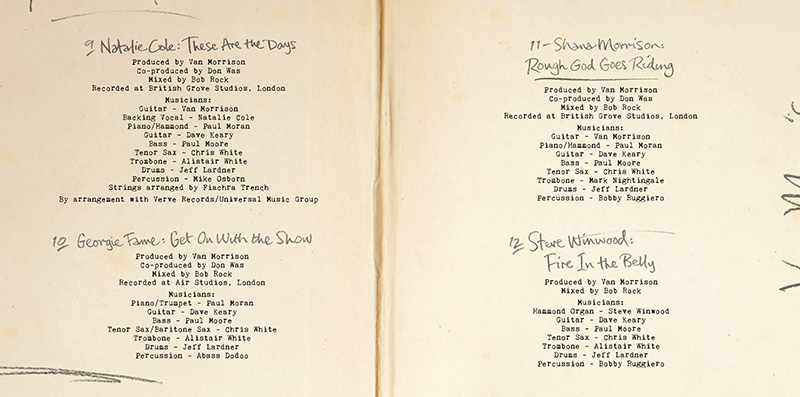 9 Natalie Cole: These Are the Days
Produced by Van Morrison
Co-produced by Don Was
Mixed by Bob Rock
Recorded at British Grove Studios, London
Musicians:
Guitar - Van Morrison
Backing Vocal - Natalie Cole
Piano/Hammond - Paul Moran
Guitar - Dave Keary
Bass - Paul Moore
Tenor Sax - Chris White
Trombone - Alistair White
Drums - Jeff Lardner
Percussion - Mike Osborn
Strings arranged by Fiachra Trench
By arrangement with Verve Records/Universal Music Group
10 Georgie Fame: Get On With the Show
Produced by Van Morrison
Co-produced by Don Was
Mixed by Bob Rock
Recorded at Air Studios, London
Musicians:
Piano/Trumpet - Paul Moran
Guitar - Dave Keary
Bass - Paul Moore
Tenor Sax/Baritone Sax - Chris White
Trombone - Alistair White
Drums - Jeff Lardner
Percussion - Abass Dodoo
11 - Shana Morrison:
Rough God Goes Riding
Produced by Van Morrison
Co-produced by Don Was
Mixed by Bob Rock
Recorded at British Grove Studios, London
Musicians:
Guitar - Van Morrison
Piano/Hammond - Paul Moran
Guitar - Dave Keary
Bass - Paul Moore
Tenor Sax - Chris White
Trombone - Mark Nightingale
Drums - Jeff Lardner
Percussion - Bobby Ruggiero
12 Steve Winwood:
Fire In the Belly
Produced by Van Morrison
Mixed by Bob Rock
Musicians:
Hammond Organ - Steve Winwood
Guitar - Dave Keary
Bass - Paul Moore
Tenor Sax - Chris White
Trombone - Alistair White
Drums - Jeff Lardner
Percussion - Bobby Ruggiero